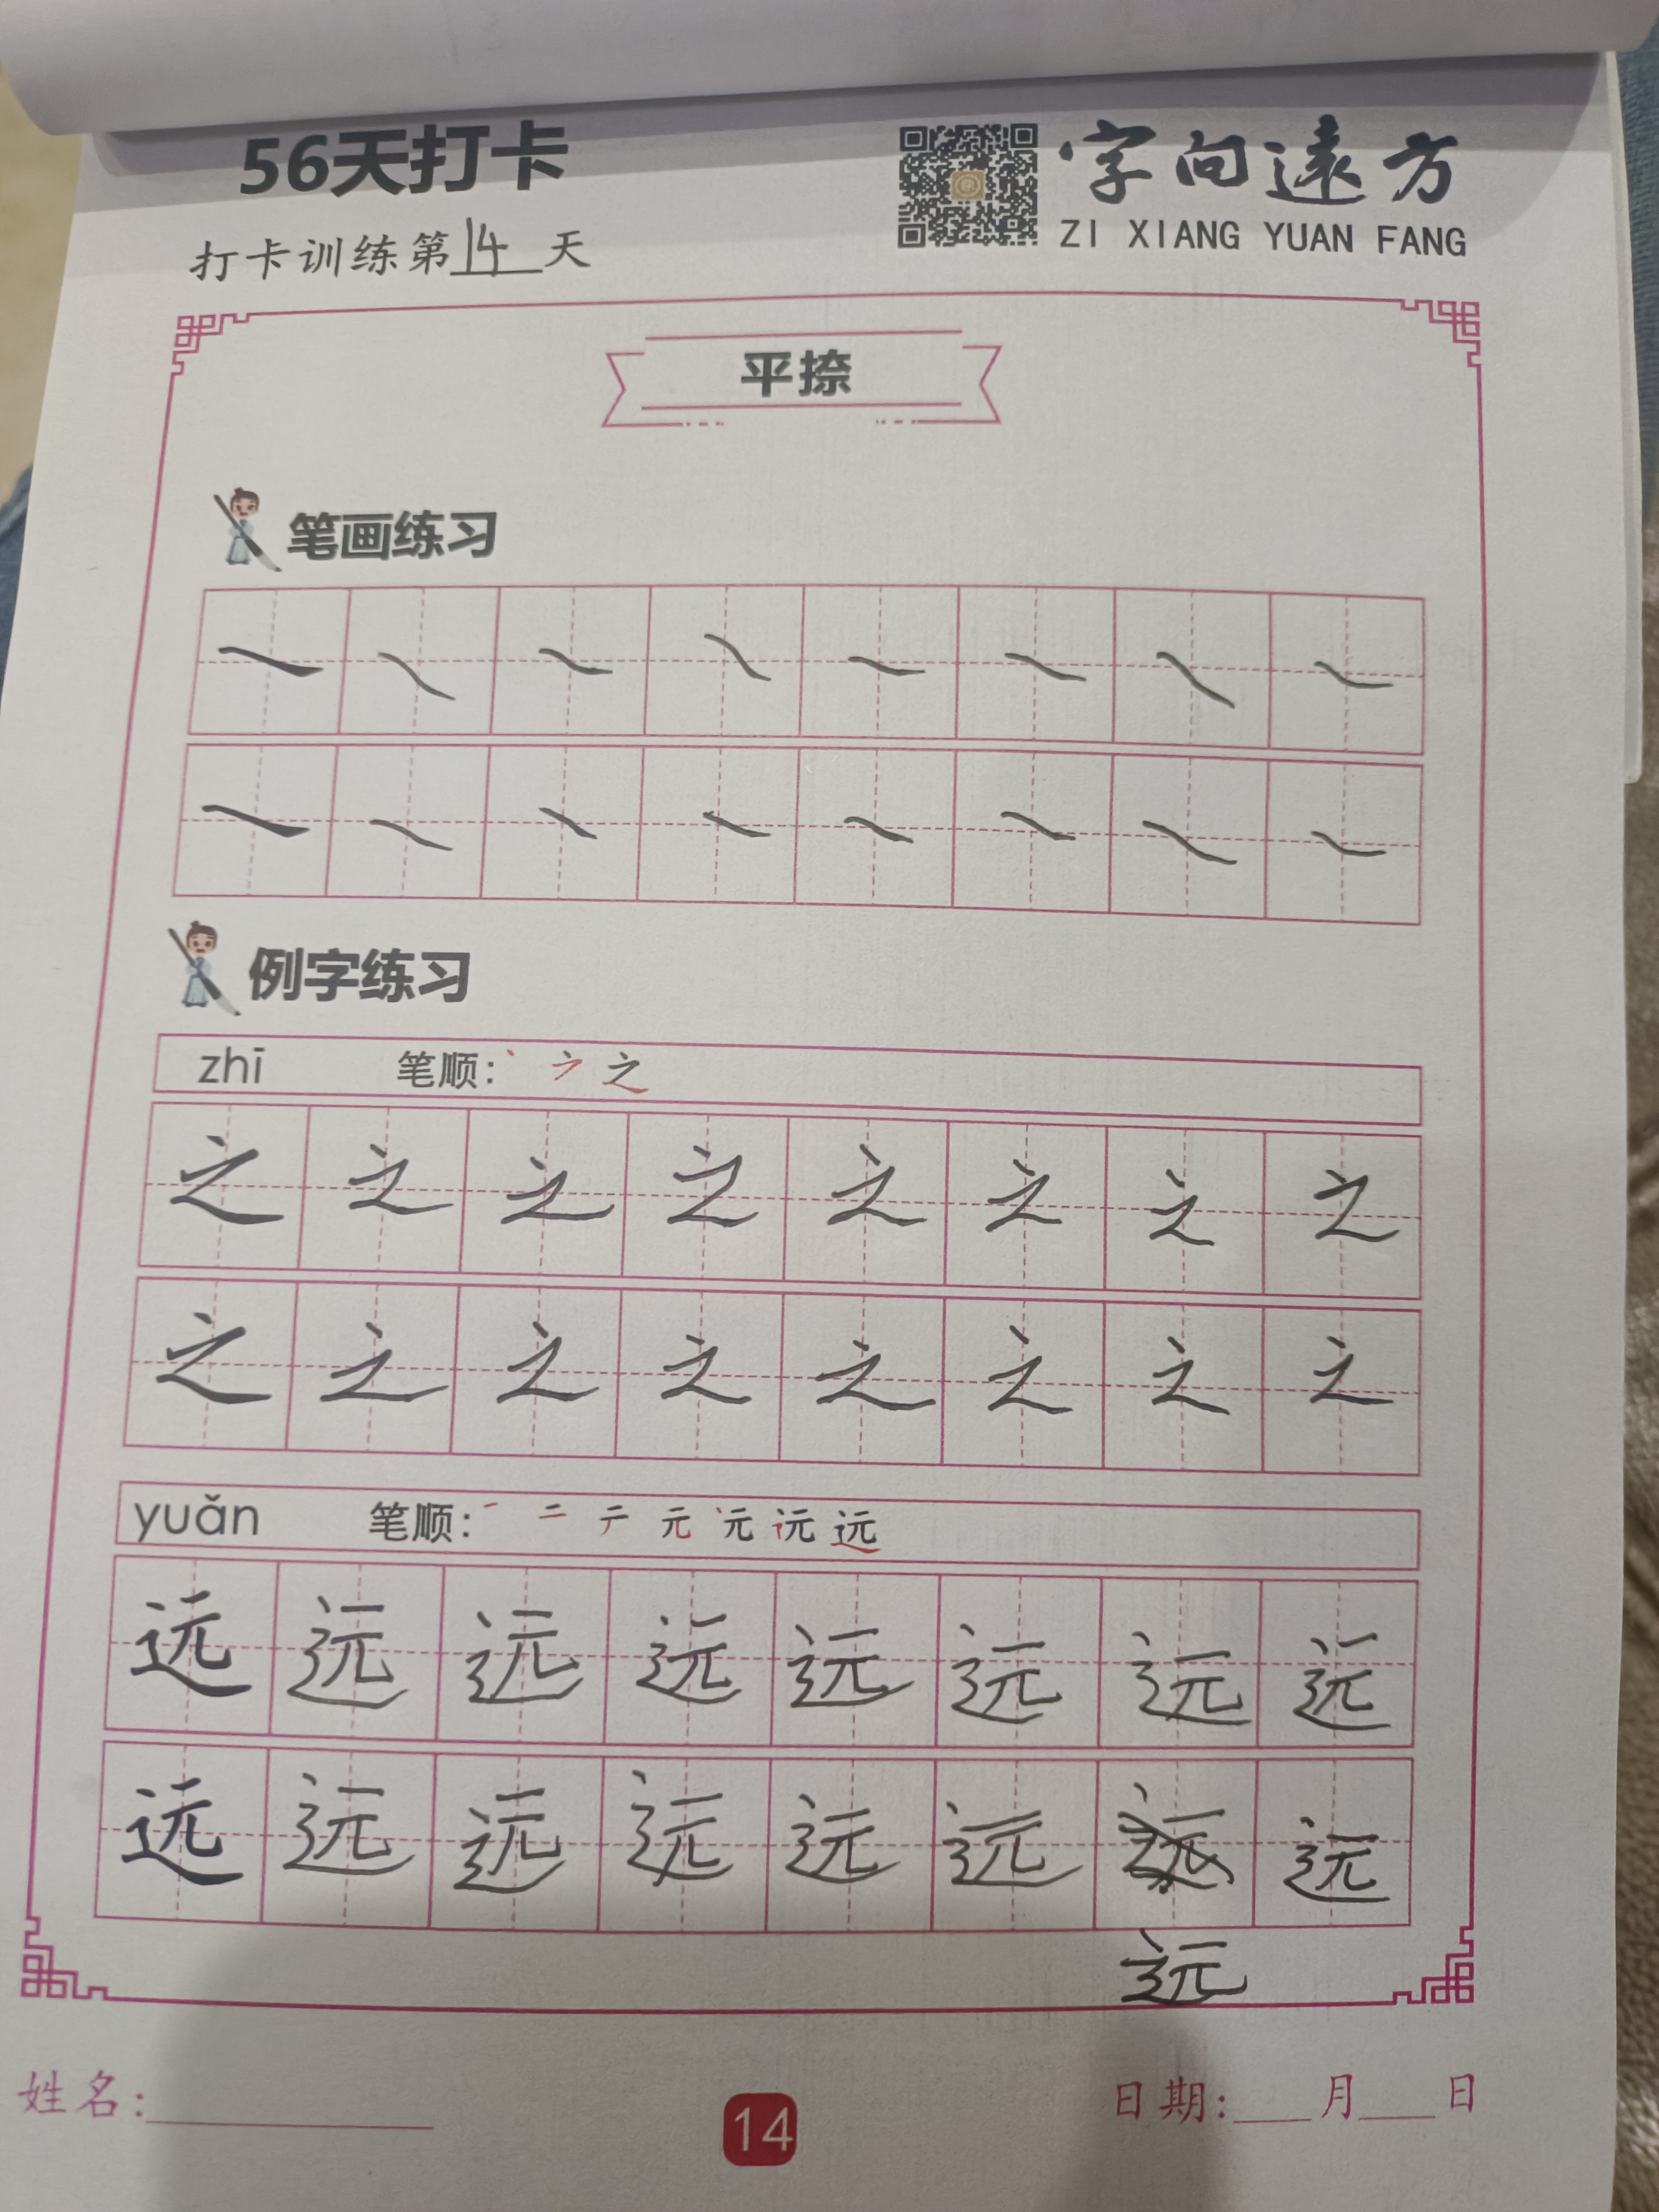 56天打卡
字向遠方
ZI XIANG YUAN FANG
打卡训练第14天
平捺
笔画练习
例字练习
zhī 笔顺: 丶 之
之 之 之 之 之 之 之 之
之 之 之 之 之 之 之 之
yuǎn 笔顺: 一 二 元 元 远
远 远 远 远 远 远 远 远
远 远 远 远 远 远 远 远
远
姓名:
14
日期: 月 日